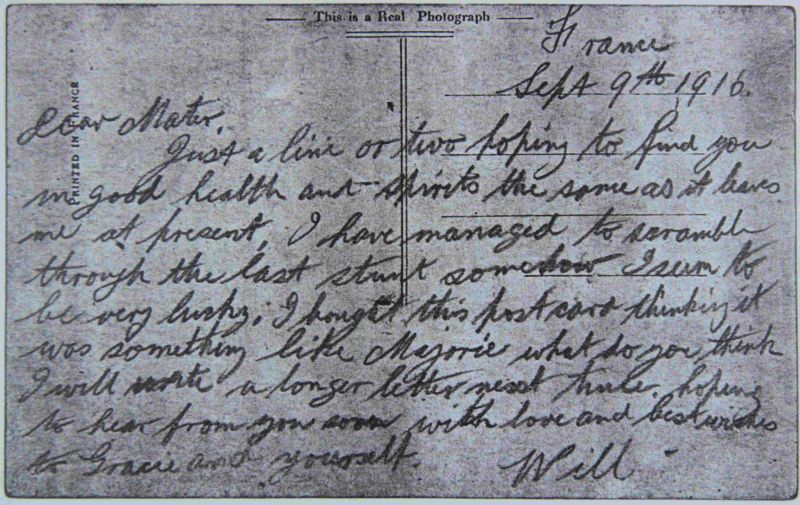 This is a Real Photograph
PRINTED IN FRANCE
France
Sept 9th 1916.
Dear Mater,
Just a line or two hoping to find you
in good health and spirits the same as it leaves
me at present, I have managed to scramble
through the last stunt somehow I seem to
be very lucky; I bought this post card thinking it
was something like Majorie what do you think
I will write a longer letter next time. hoping
to hear from you soon with love and best wishes
to Gracie and yourself.
Will